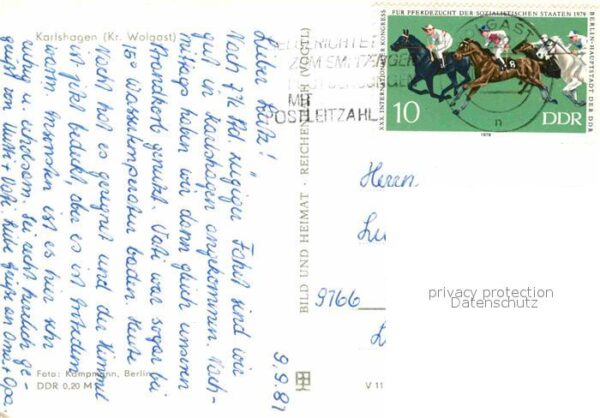 Karlshagen (Kr. Wolgast)
Lieber Lutz!
Nach 7½ Std. zugiger Fahrt sind wir
gut in Karlshagen angekommen. Nach-
mittags haben wir dann gleich unseren
Strandkorb genutzt. Vati war sogar bei
18° Wassertemperatur baden. Heute
Nacht hat es geregnet und der Himmel
ist jetzt bedeckt, aber es ist trotzdem
warm. Ansonsten ist es hier sehr
ruhig u. erholsam. Sei recht herzlich ge-
grüßt von Mutti + Vati. Liebe Grüße an Oma + Opa.
9.9.81
Foto: Kampmann, Berlin
DDR 0,20 M
BILD UND HEIMAT · REICHENBACH (VOGTL)
V 11
MIT
POSTLEITZAHL
XXX. INTERNATIONALER KONGRESS
FÜR PFERDEZUCHT DER SOZIALISTISCHEN STAATEN 1979
BERLIN-HAUPTSTADT DER DDR
WOLGAST
n
8
10
DDR
1979
Herrn
9766
privacy protection
Datenschutz